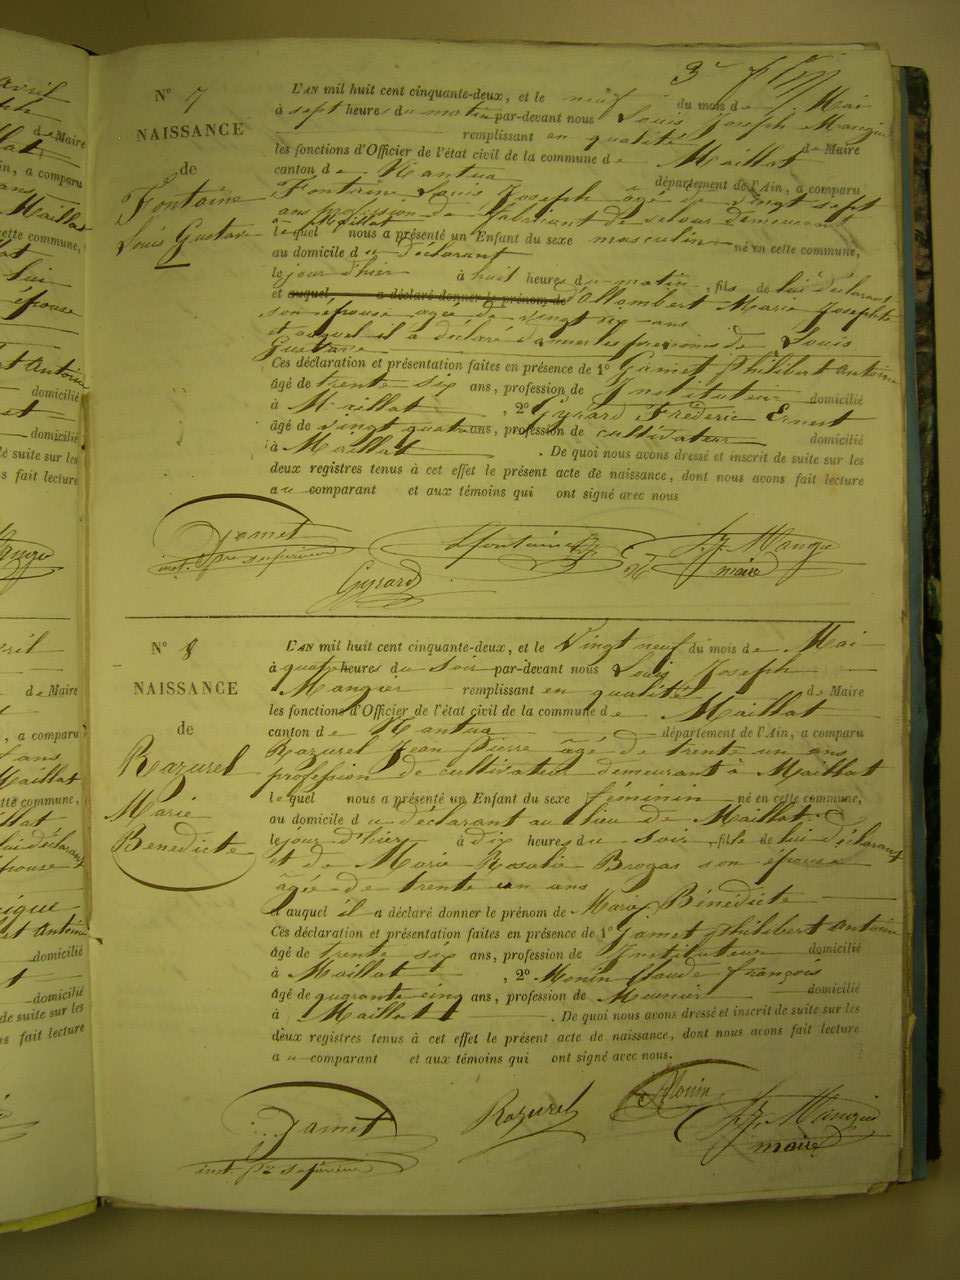 N° 7
NAISSANCE
de
Fontaine
Louis Gustave
L'AN mil huit cent cinquante-deux, et le neuf du mois de Mai
à sept heures du matin par-devant nous Louis Joseph Mangier
remplissant en qualité de Maire
les fonctions d'Officier de l'état civil de la commune de Maillat
canton de Nantua département de l'Ain, a comparu
Fontaine Louis Joseph âgé de vingt sept
ans profession de fabricant de demeurant
à Maillat
lequel nous a présenté un Enfant du sexe masculin né en cette commune,
au domicile du déclarant
le jour d'hier à huit heures du matin, fils de lui déclarant
et auquel a déclaré donner le prénom de d'Allombert Marie Josephte
son épouse agée de vingt six ans
et auquel il a déclaré donner les prénoms de Louis
Gustave
Ces déclaration et présentation faites en présence de 1° Gamet Philibert Antoine
âgé de trente six ans, profession de Instituteur domicilié
à Maillat, 2° Gyrard Frédéric Ernest
âgé de vingt quatre ans, profession de cultivateur domicilié
à Maillat. De quoi nous avons dressé et inscrit de suite sur les
deux registres tenus à cet effet le présent acte de naissance, dont nous avons fait lecture
au comparant et aux témoins qui ont signé avec nous
Gamet
inst. pre supérieur
Gyrard
Lfontaine
Mangier
maire
N° 8
NAISSANCE
de
Razurel
Marie
Benedicte
L'AN mil huit cent cinquante-deux, et le Vingt neuf du mois de Mai
à quatre heures du soir par-devant nous Louis Joseph
Mangier remplissant en qualité de Maire
les fonctions d'Officier de l'état civil de la commune de Maillat
canton de Nantua département de l'Ain, a comparu
Razurel Jean Pierre âgé de trente un ans
profession de cultivateur demeurant à Maillat
lequel nous a présenté un Enfant du sexe féminin né en cette commune,
au domicile du déclarant au lieu de Maillat
le jour d'hier à dix heures du soir, fils de lui déclarant
et de Marie Rosalie Brogas son épouse
âgée de trente un ans
et auquel il a déclaré donner le prénom de Marie Bénédicte
Ces déclaration et présentation faites en présence de 1° Gamet Philibert Antoine
âgé de trente six ans, profession de Instituteur domicilié
à Maillat, 2° Monin Claude François
âgé de quarante cinq ans, profession de Meunier domicilié
à Maillat. De quoi nous avons dressé et inscrit de suite sur les
deux registres tenus à cet effet le présent acte de naissance, dont nous avons fait lecture
au comparant et aux témoins qui ont signé avec nous.
Gamet
inst. pre supérieur
Razurel
Monin
Mangier
maire